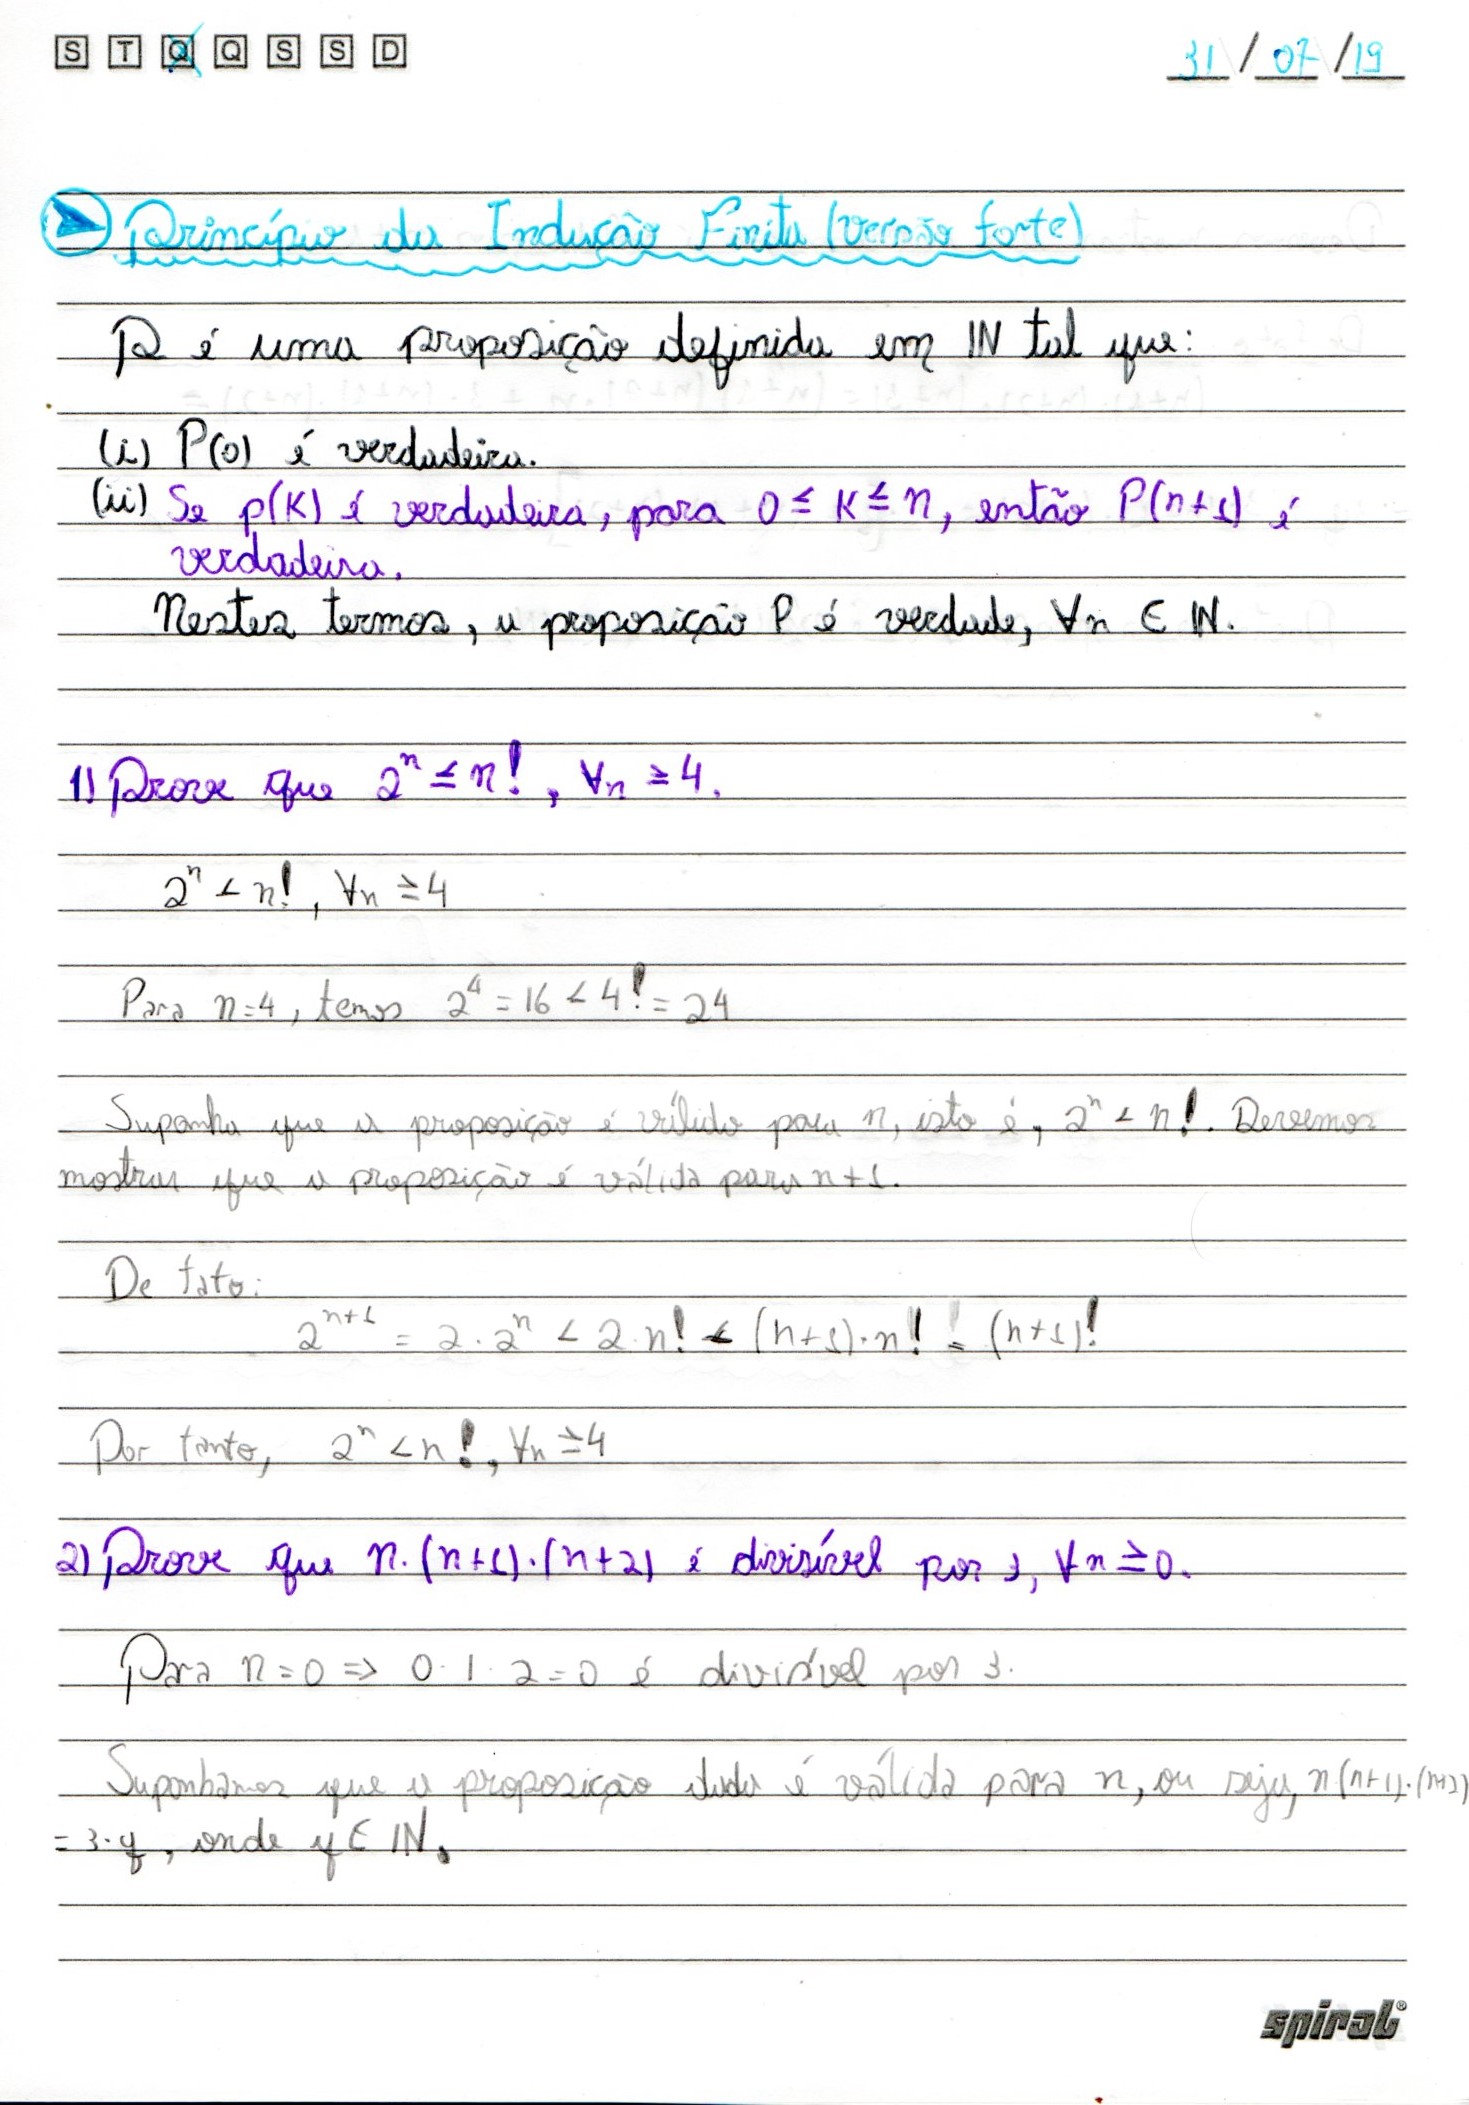 S T Q Q S S D 31/07/19
Princípio da Indução Finita (versão forte)
P é uma proposição definida em IN tal que:
(i) P(0) é verdadeira.
(ii) Se p(K) é verdadeira, para 0 ≤ K ≤ n, então P(n+1) é
verdadeira.
Nestes termos, a proposição P é verdade, ∀n ∈ IN.
1) Prove que 2ⁿ ≤ n!, ∀n ≥ 4.
2ⁿ < n!, ∀n ≥ 4
Para n=4, temos 2⁴ = 16 < 4! = 24
Suponha que a proposição é válido para n, isto é, 2ⁿ < n!. Devemos
mostrar que a proposição é válida para n+1.
De fato:
2ⁿ⁺¹ = 2 · 2ⁿ < 2 · n! < (n+1) · n! = (n+1)!
Por tanto, 2ⁿ < n!, ∀n ≥ 4
2) Prove que n · (n+1) · (n+2) é divisível por 3, ∀n ≥ 0.
Para n=0 => 0 · 1 · 2 = 0 é divisível por 3.
Suponhamos que a proposição dada é válida para n, ou seja, n(n+1)·(n+2)
= 3·q, onde q ∈ IN.
spiral®